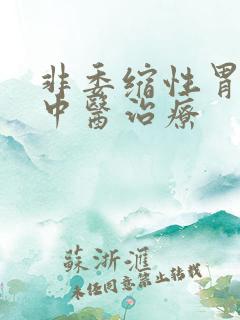 非委缩性胃
中醫治療
蘇浙滙
未经同意禁止转载